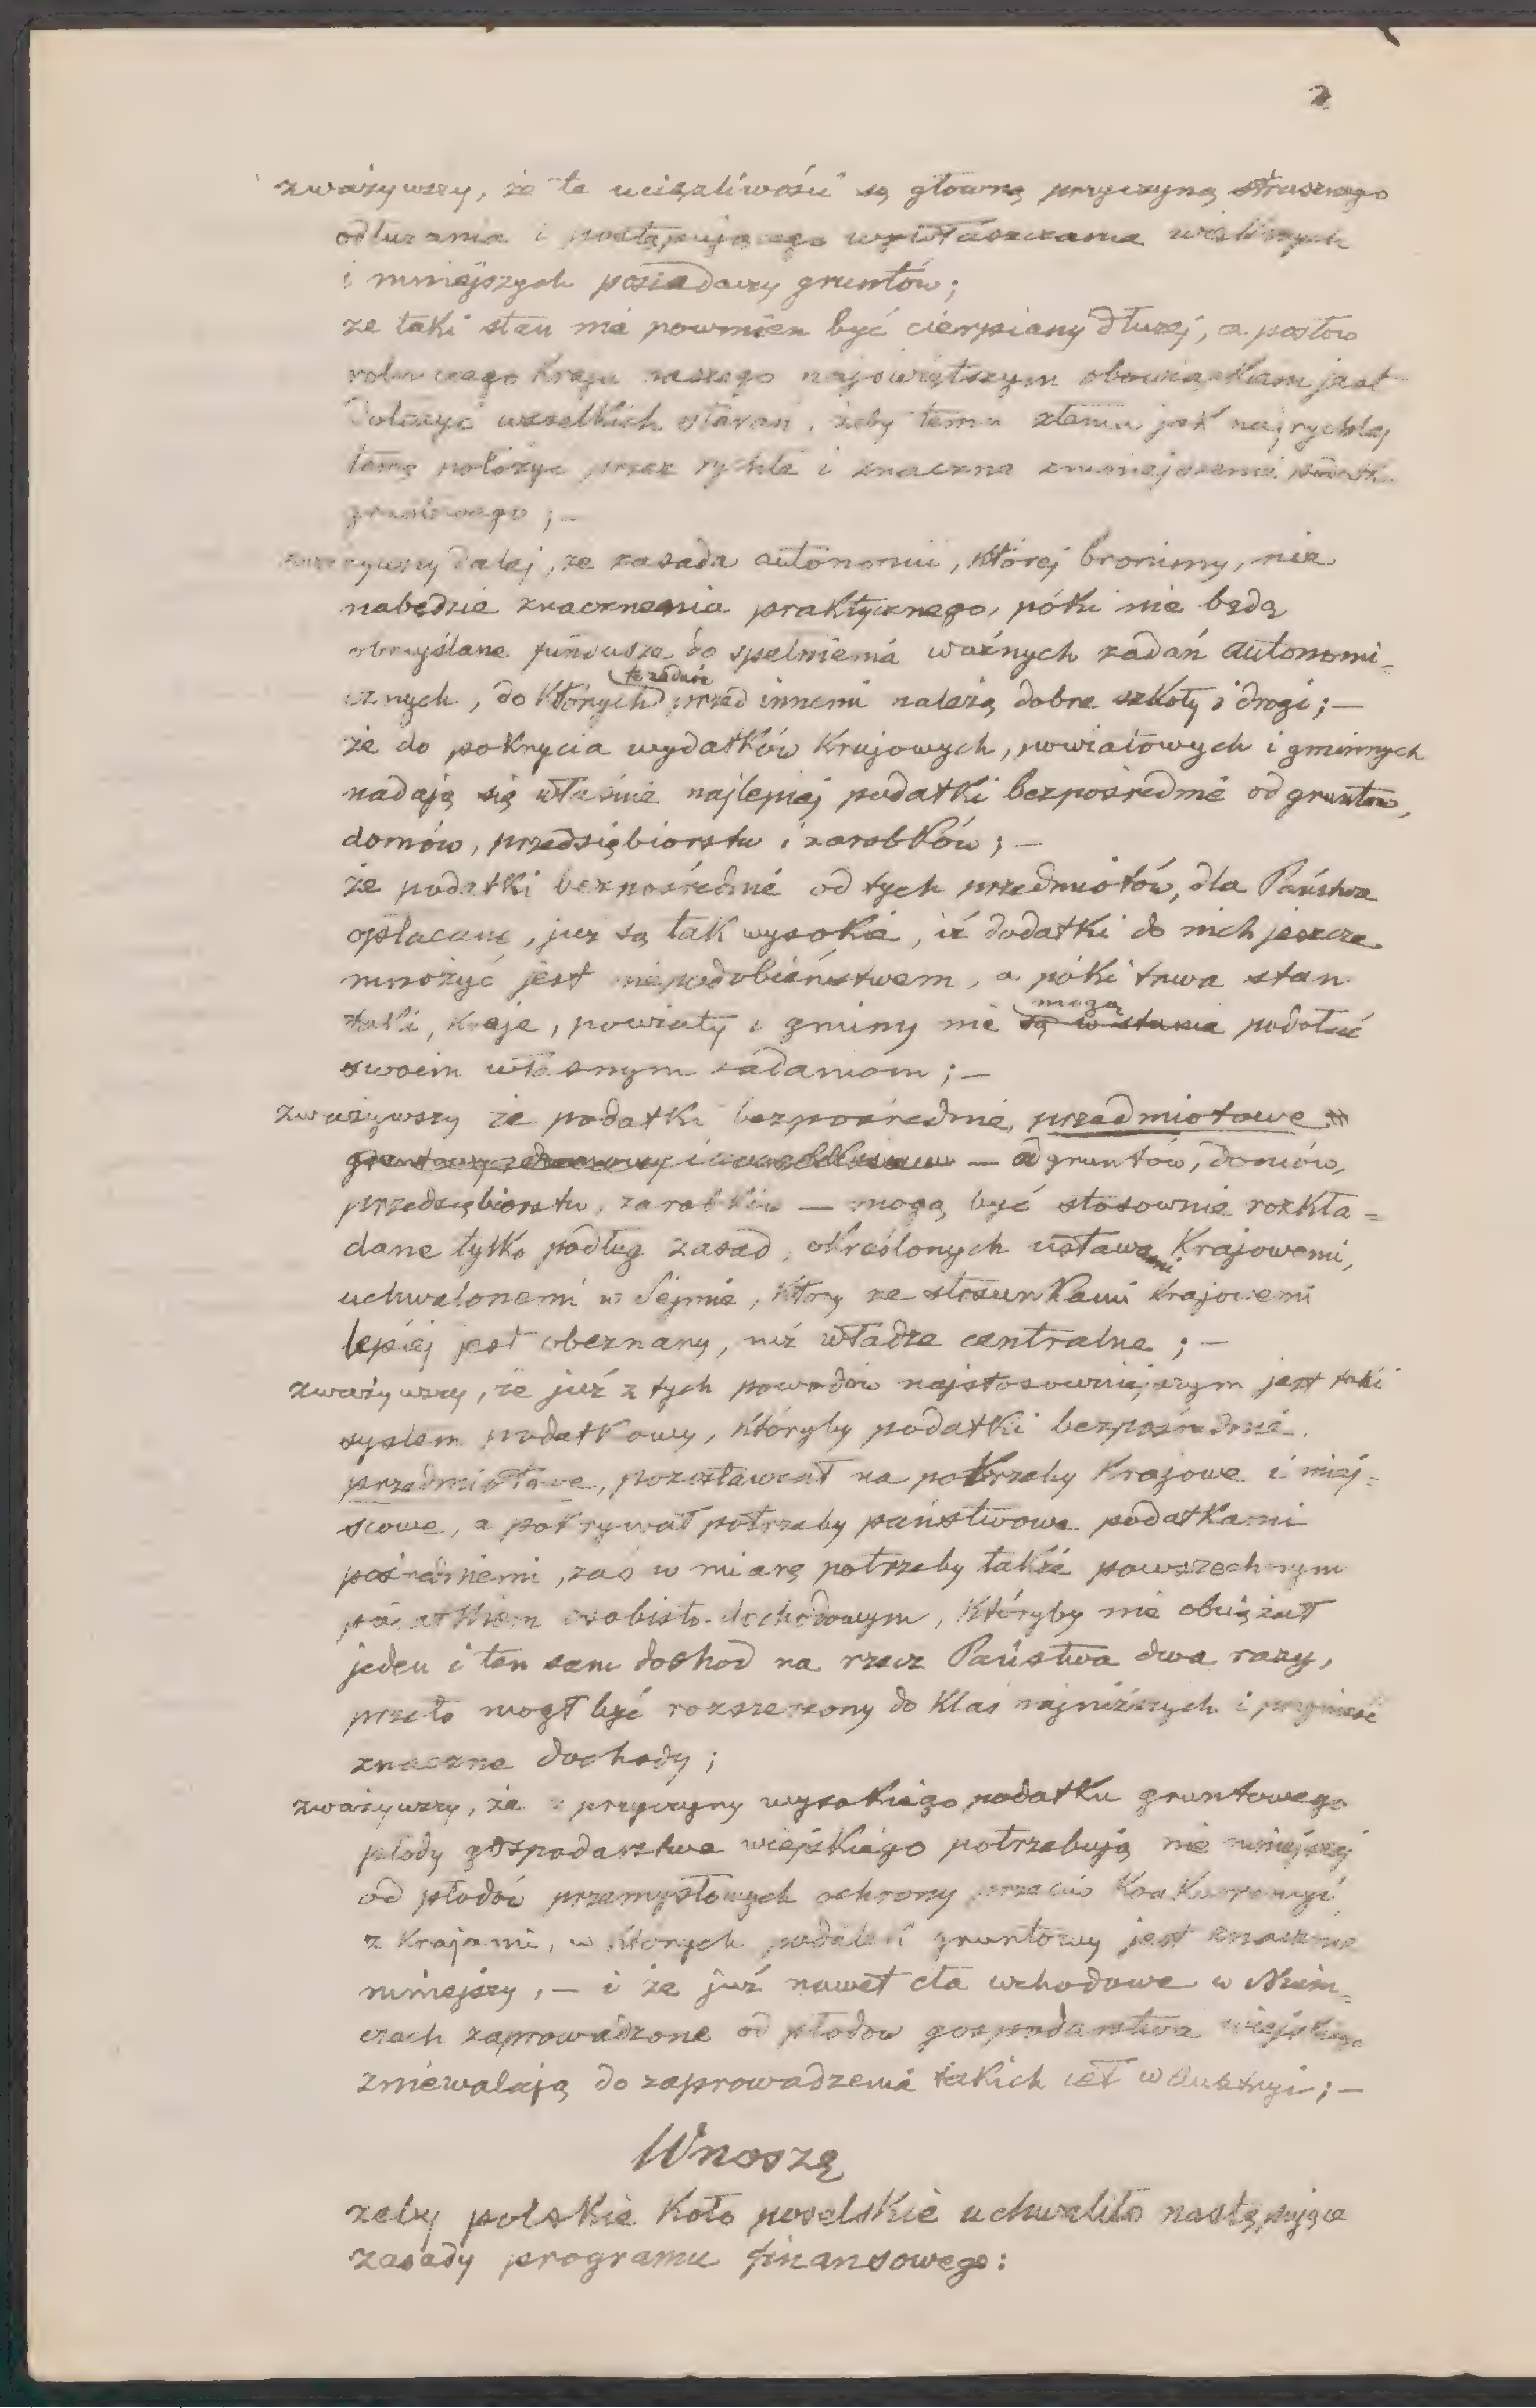 2
zważywszy, że te uciążliwości są główną przyczyną strasznego
odłużania i postępującego wywłaszczania większych
i mniejszych posiadaczy gruntów;
że taki stan nie powinien być cierpiany dłużej, a posłów
rolniczego kraju naszego najświętszym obowiązkiem jest
dołożyć wszelkich starań, żeby temu złemu jak najrychlej
tamę położyć przez rychłe i znaczne zmniejszenie podatk.
gruntowego; —
zważywszy dalej, że zasada autonomii, której bronimy, nie
nabędzie znaczenia praktycznego, póki nie będą
obmyślane fundusze do spełnienia ważnych zadań autonomi-
cznych, do których przed innemi należą dobre szkoły i drogi; —
że do pokrycia wydatków krajowych, powiatowych i gminnych
nadają się właśnie najlepiej podatki bezpośrednie od gruntów,
domów, przedsiębiorstw i zarobków; —
że podatki bezpośrednie od tych przedmiotów, dla Państwa
opłacane, już są tak wysokie, iż dodatki do nich jeszcze
mnożyć jest niepodobieństwem, a póki trwa stan
taki, kraje, powiaty i gminy nie są w stanie mogą podołać
swoim własnym zadaniom; —
zważywszy że podatki bezpośrednie, przedmiotowe
— od gruntów, domów,
przedsiębiorstw, zarobków — mogą być stosownie rozkła=
dane tylko podług zasad, określonych ustawami krajowemi,
uchwalonemi w Sejmie, który ze stosunkami krajowemi
lepiej jest obeznany, niż władze centralne; —
zważywszy, że już z tych powodów najstosowniejszym jest taki
system podatkowy, któryby podatki bezpośrednie,
przedmiotowe, pozostawiał na potrzeby krajowe i miej=
scowe, a pokrywał potrzeby państwowe podatkami
pośredniemi, zaś w miarę potrzeby także powszechnym
podatkiem osobisto-dochodowym, któryby nie obciążał
jeden i ten sam dochod na rzecz Państwa dwa razy,
przeto mogł być rozszerzony do klas najniższych i przynieść
znaczne dochody;
zważywszy, że z przyczyny wysokiego podatku gruntowego
płody gospodarstwa wiejskiego potrzebują nie mniejszej
od płodów przemysłowych ochrony przeciw konkurencyi
z krajami, w których podatek gruntowy jest znacznie
mniejszy, — i że już nawet cła wchodowe w Niem=
czech zaprowadzone od płodów gospodarstwa wiejskiego
zniewalają do zaprowadzenia takich ceł w Austryi; —
Wnoszę
żeby polskie Koło poselskie uchwaliło następujące
zasady programu finansowego: